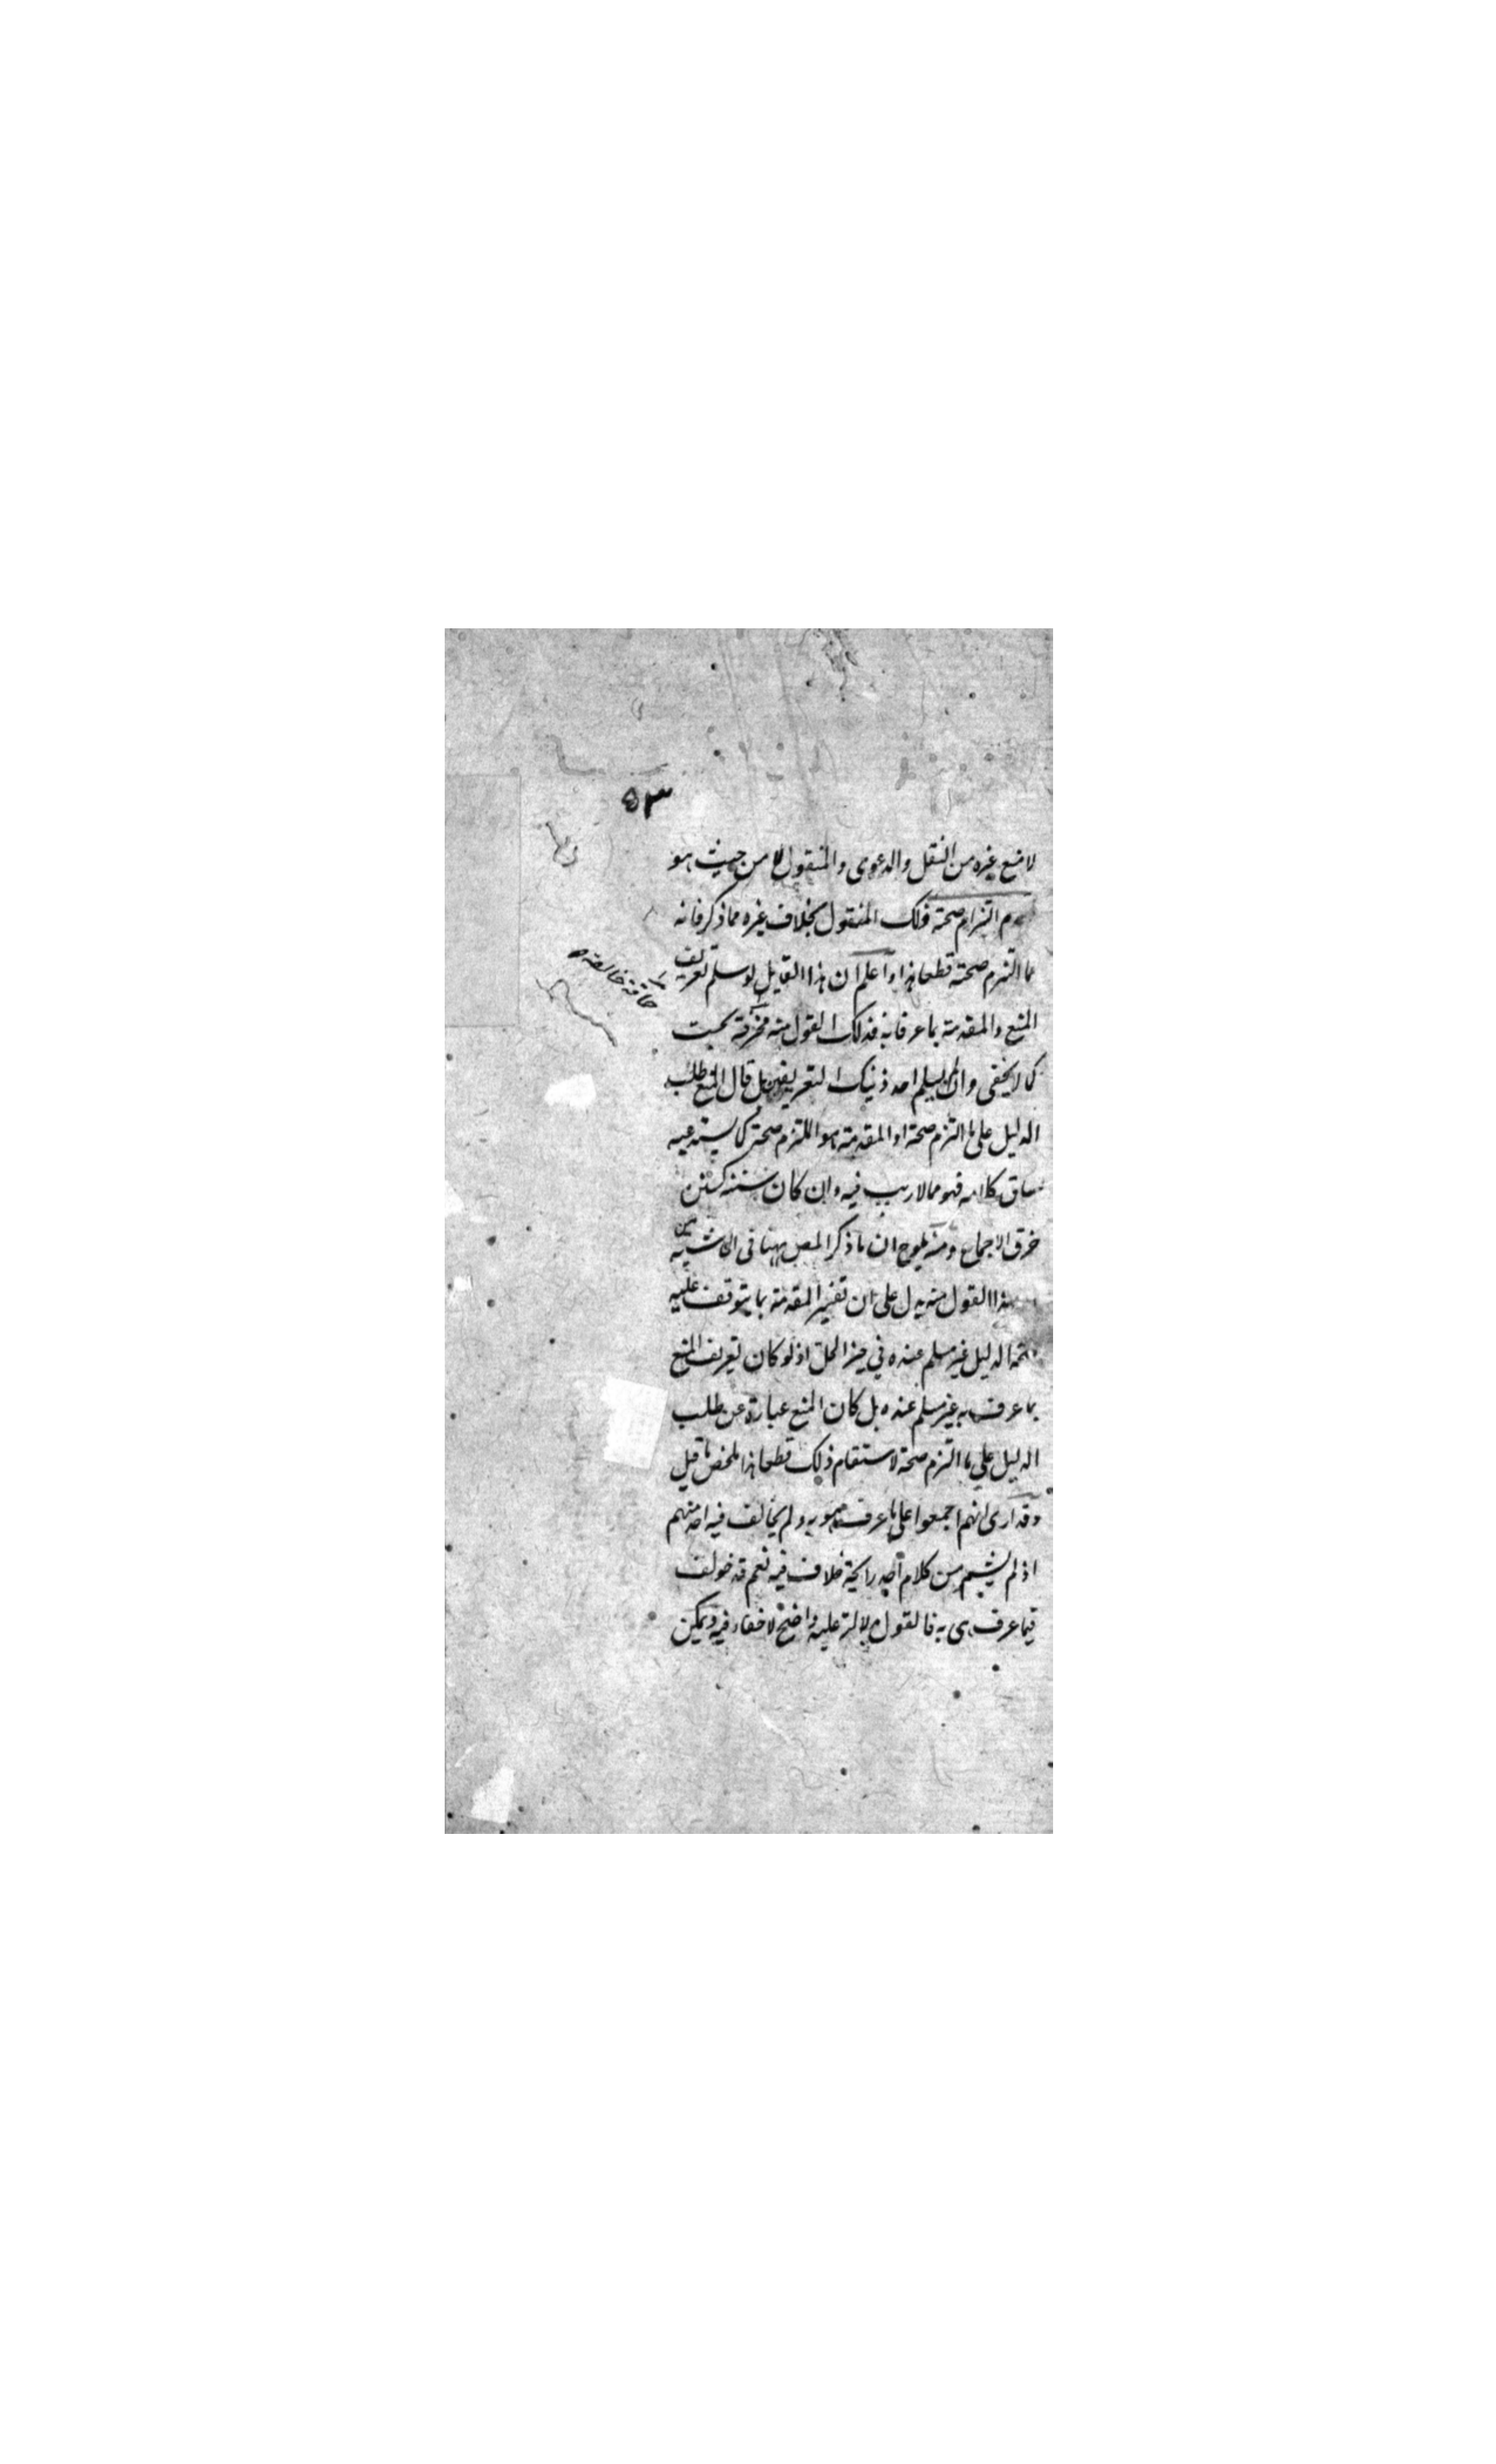 ٥٣
لا منع غيره من النقل والدعوى والمنقول لا من حيث هو
التزام صحته فلك المنقول بخلاف غيره مما ذكر فانه
مما التزم صحته قطعا هذا واعلم ان هذا القايل لو سلم تعريف
المنع والمقدمة بما عرفا به فذلك القول منه مخرقة بحت
كما لا يخفى وان لم يسلم احد ذينك التعريفين بل قال المنع طلب
الدليل على ما التزم صحته او المقدمة هو الملتزم صحته كما يستدعيه
مساق كلامه فهو مما لا ريب فيه وان كان سننه كسنن
خرق الاجماع ومنه يلوح ان ما ذكر المص ههنا في الحاشية من
هذا القول منه يدل على ان تفسير المقدمة بما يتوقف عليه
صحة الدليل غير مسلم عنده في حيز الحل اذ لو كان تعريف المنع
بما عرف به غير مسلم عنده بل كان المنع عبارة عن طلب
الدليل على ما التزم صحته لاستقام ذلك قطعا هذا ملخص ما قيل
وقد ارى انهم اجمعوا على ما عرف هو به ولم يخالف فيه احد منهم
اذ لم يشم من كلام احد رايحة خلاف فيه نعم قد خولف
فيما عرف هى به فالقول لا لتر عليه واضح لا خفاء فيه ويمكن